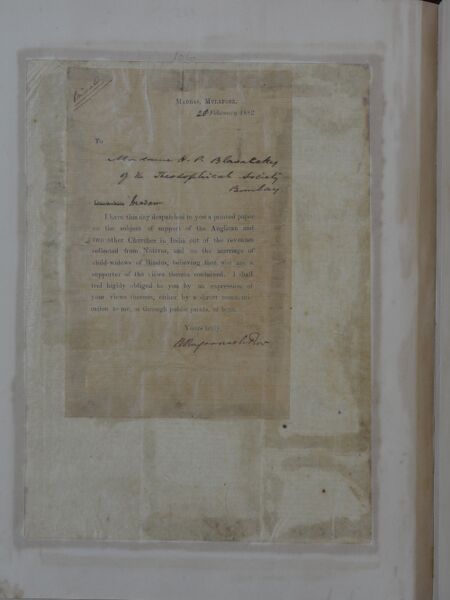 Madras, Mylapore,
February 1882
To
Madame H. P. Blavatsky
of the Theosophical Society
Bombay
Madam
I have this day despatched to you a printed paper
on the subject of support of the Anglican and
two other Churches in India out of the revenues
collected from Natives, and on the marriage of
child-widows of Hindus, believing that you are a
supporter of the views therein contained. I shall
feel highly obliged to you by an expression of
your views thereon, either by a direct commun-
ication to me, or through public prints, or both.
Yours truly,